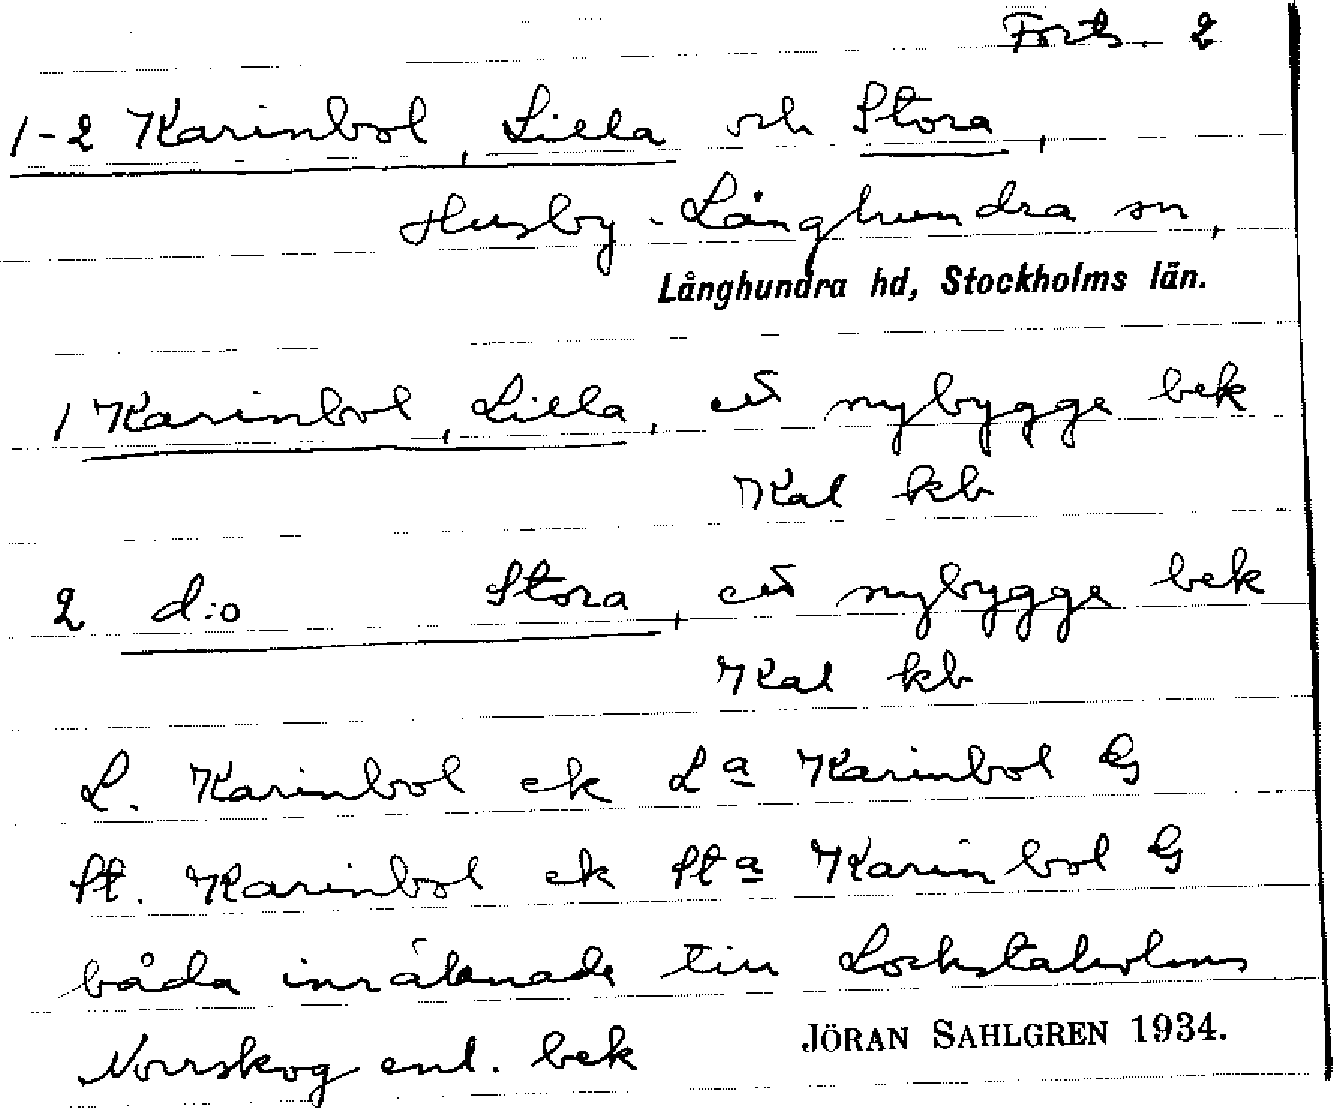 Forts. 2
1-2 Karinbol, Lilla och Stora,
Husby-Långhundra sn,
Långhundra hd, Stockholms län.
1 Karinbol, Lilla, ett nybygge bek
Kal kb
2 d:o Stora, ett nybygge bek
Kal kb
L. Karinbol ek La Karinbol G
St. Karinbol ek Sta Karinbol G
båda inräknade till Lockstaholms
Norrskog enl. bek
JÖRAN SAHLGREN 1934.